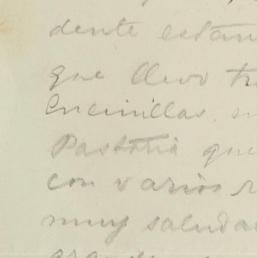 dente estan
que llevo tr
Encinillas.
que
con varios
muy saluda